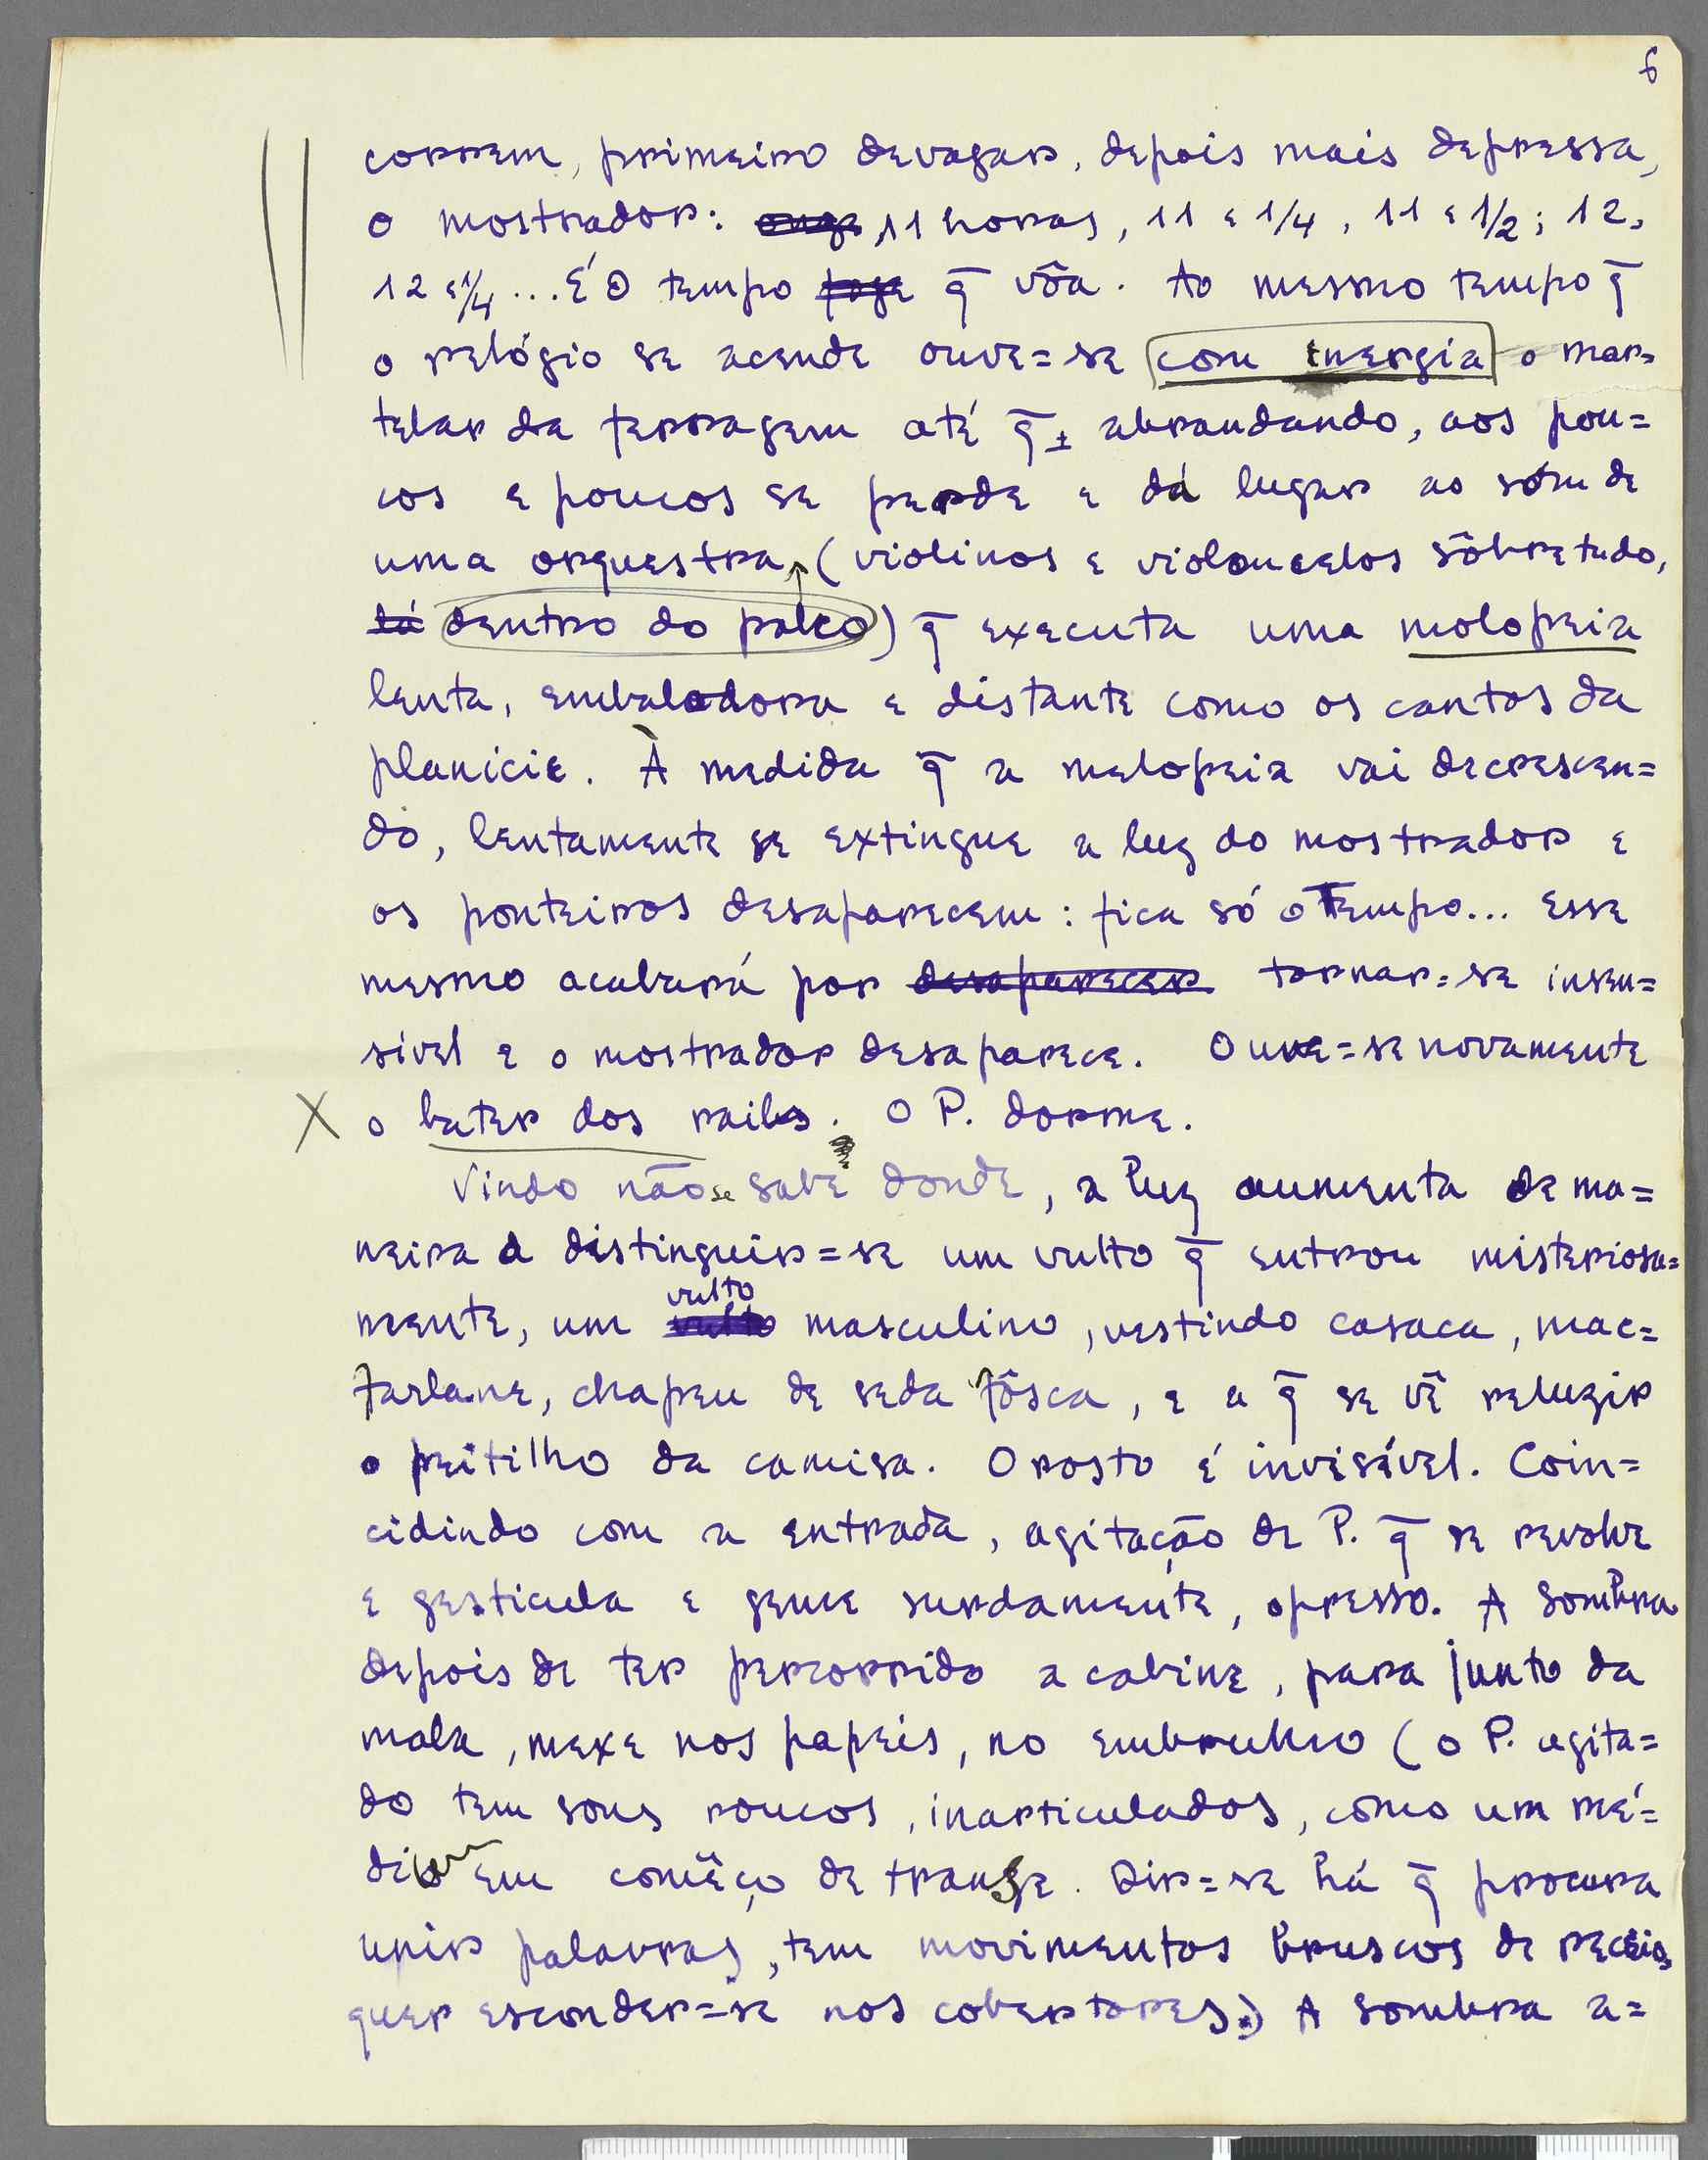 6
correm, primeiro devagar, depois mais depressa,
o mostrador: onze 11 horas, 11 e 1/4, 11 e 1/2; 12,
12 e 1/4 ... É O tempo foge q̄ vôa. Ao mesmo tempo q̄
o relógio se acende ouve=se com energia o mar=
telar da ferragem até q̄ abrandando, aos pou=
cos e poucos se perde e dá lugar ao som de
uma orquestra (violinos e violoncelos sôbretudo,
lá dentro do palco) q̄ executa uma molopeia
lenta, embaladora e distante como os cantos da
planície. À medida q̄ a melopeia vai decrescen=
do, lentamente se extingue a luz do mostrador e
os ponteiros desaparecem: fica só o Tempo... Esse
mesmo acabará por desaparecer tornar=se insen=
sível e o mostrador desaparece. Ouve=se novamente
X o bater dos rails. O P. dorme.
Vindo não se sabe donde, a luz aumenta de ma=
neira a distinguir=se um vulto q̄ entrou misteriosa=
vulto
mente, um vulto masculino, vestindo casaca, mac=
farlane, chapeu de seda fôsca, e a q̄ se vê reluzir
o peitilho da camisa. O rosto é invisível. Coin=
cidindo com a entrada, agitação de P. q̄ se revolve
e gesticula e geme surdamente, opresso. A Sombra
depois de ter percorrido a cabine, para junto da
mala, mexe nos papeis, no embrulho (o P. agita=
do tem sons roucos, inarticulados, como um mé=
dium em comêço de transe. Dir=se há q̄ procura
unir palavras, tem movimentos bruscos de receio,
quer esconder=se nos cobertores.) A sombra a=